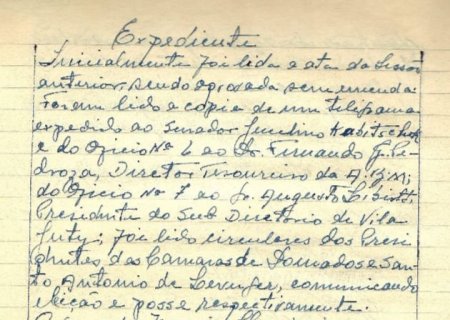 Expediente
Inicialmente foi lida a ata da Sessão
anterior, sendo aprovada sem emenda
Foram lido a copia de um telegrama
expedido ao Senador Jucelino Kubitschek
e do Oficio Nº 6 ao Dr. Fernando G. Pe-
droza, Diretor Tesoureiro da A.B.M;
do Oficio Nº 7 ao Sr. Augusto
Presidente do Sub Diretorio de Vila
Juty; foi lido circulares dos Presi-
dentes das Camaras de Dourados e San-
to Antonio de Leverger, comunicando
eleição e posse respectivamente.